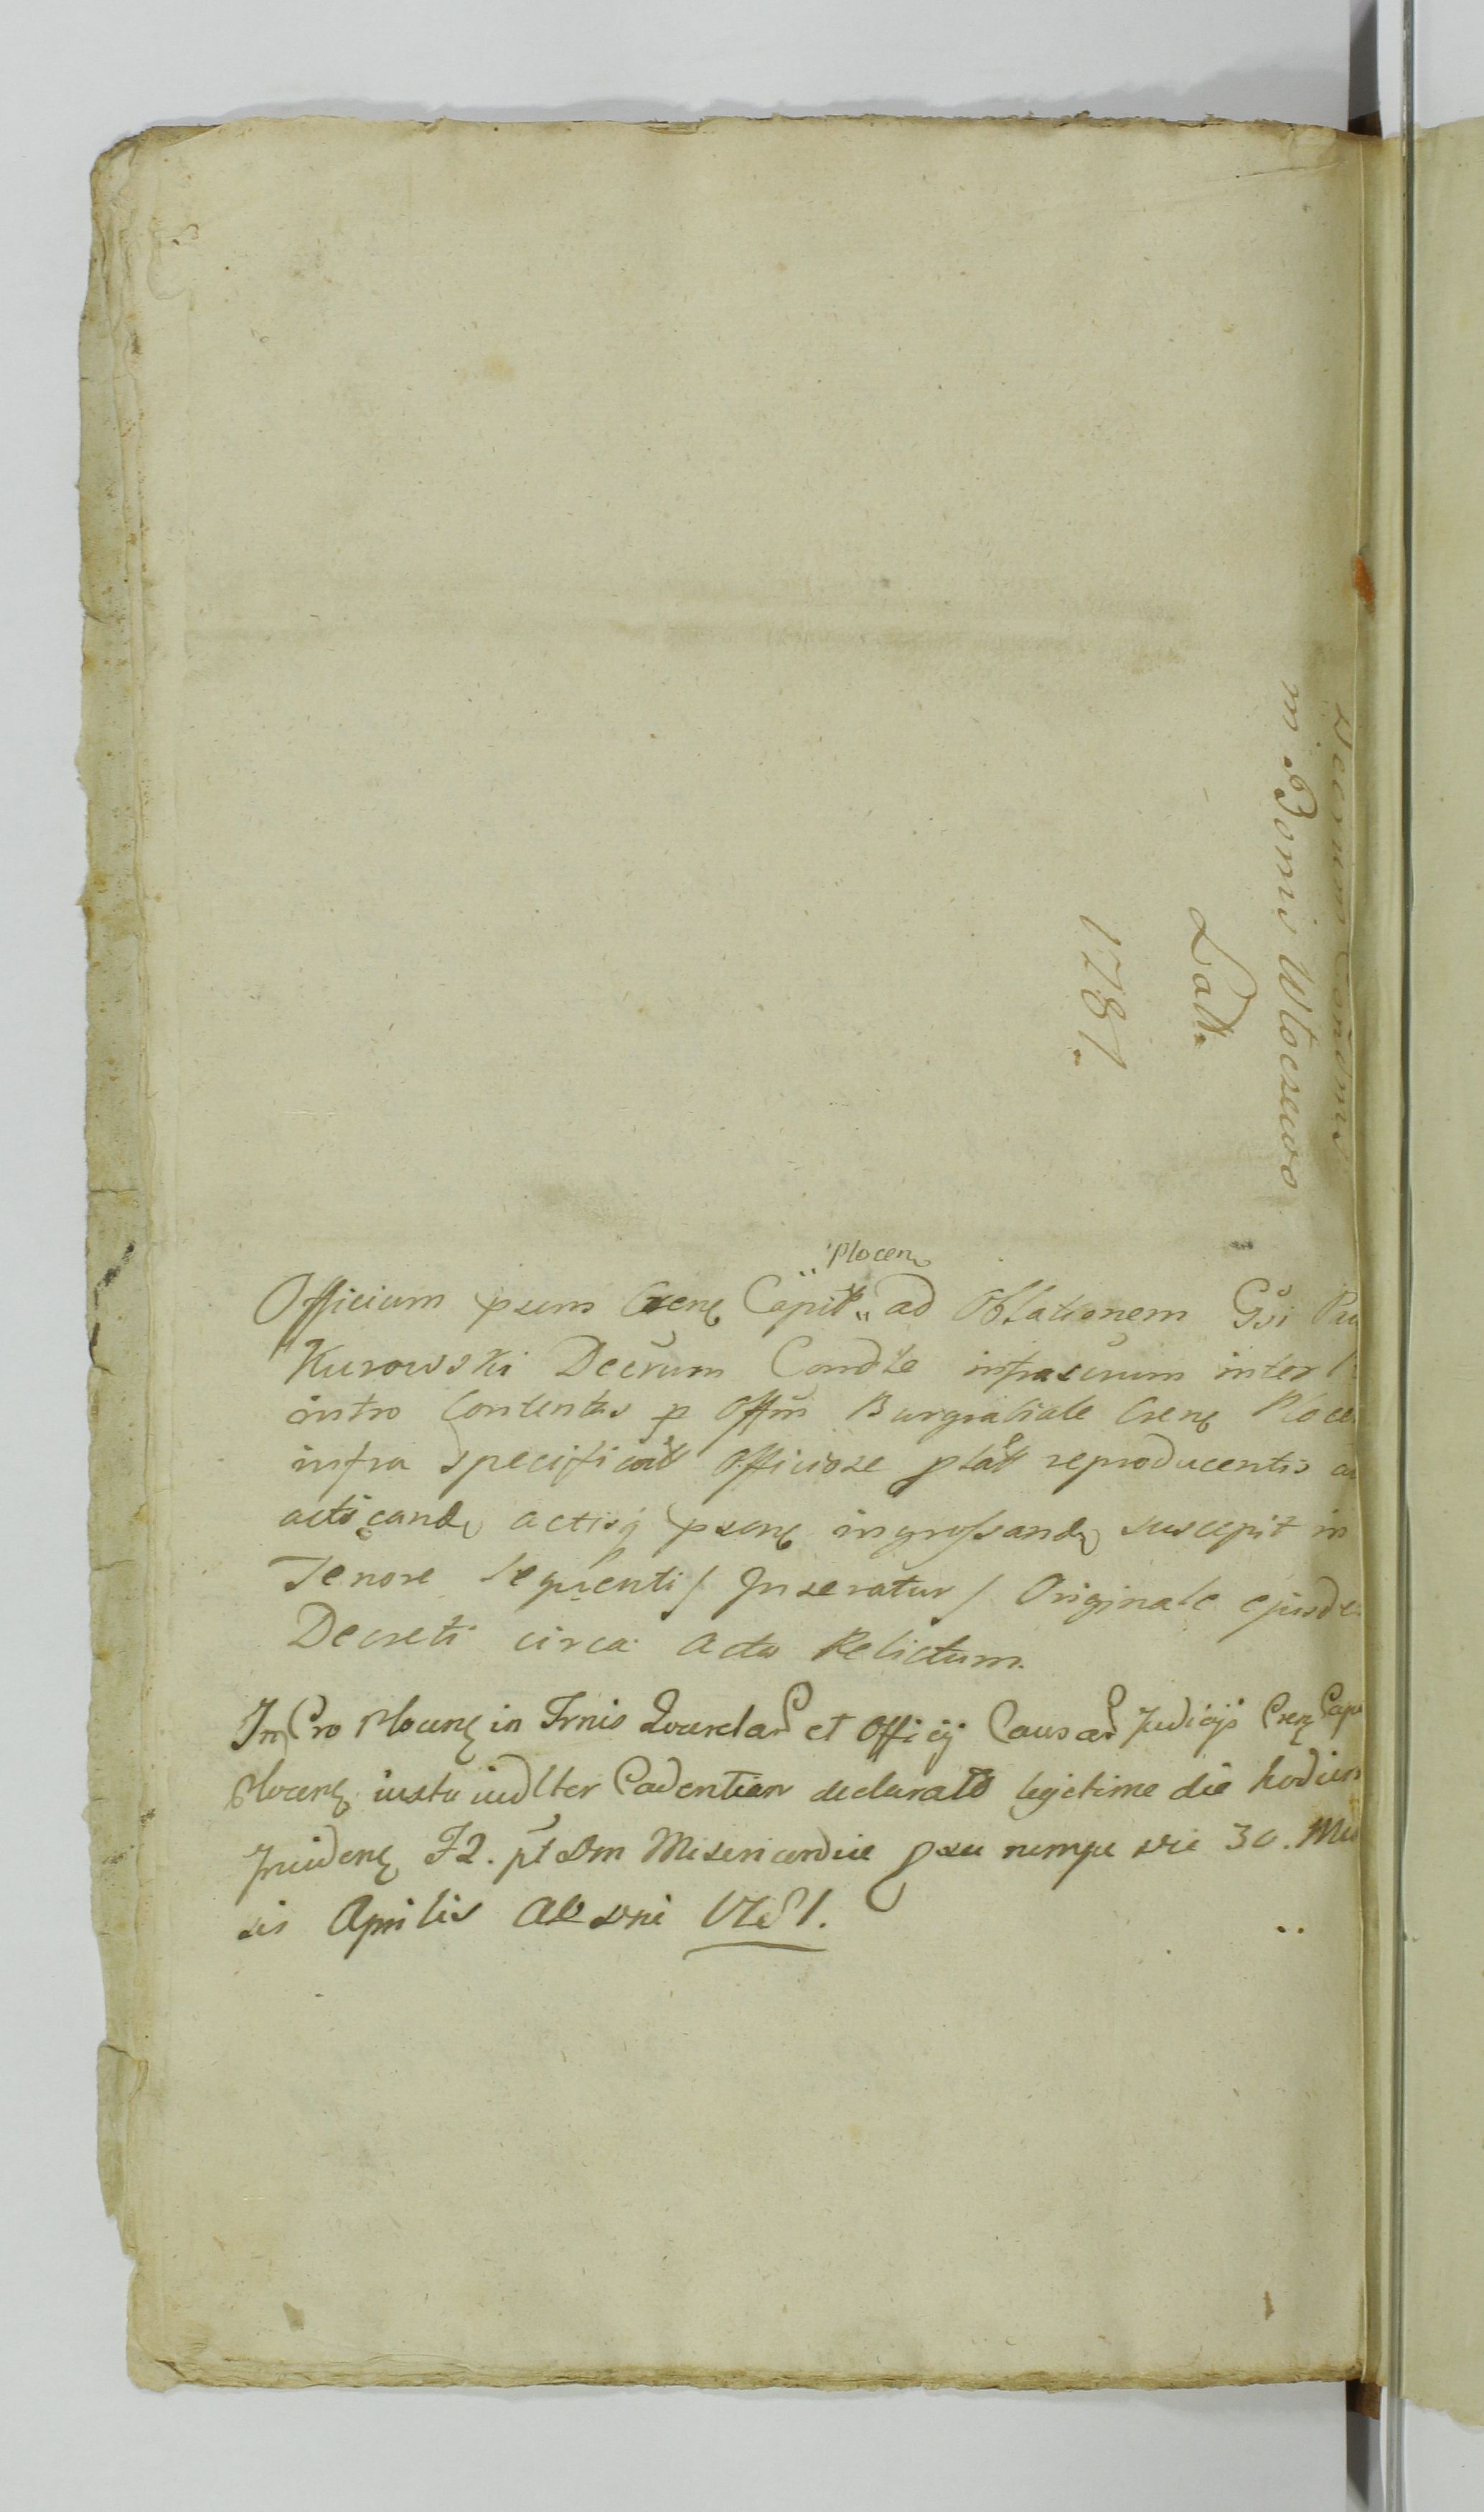 Decrum Condmis
in Bonis Wloczewo
Latt.
1781.
„Plocen
Officium psens Crens Capit„ ad Oblationem Gsi
Kurowski Decrum Condte infrascrum inter
intro Contentas p Offm Burgrabiale Crens Ploce
infra specificat Officiose plat reproducentis
acticand actisq psens ingrossand suscepit in
Tenore sequenti / Inseratur / Originale ejusde
Decreti circa acta Relictum.
In Cro Plocens in Trnis Querelar et Officij Causar Judicijs Crens Cap
Plocens iuxta iudlter Cadentiam declarata legitime die hodier
Inciden F2. pt Dm Misericordiae psu nempe die 30. Men
sis Aprilis Ao Dni 1781.